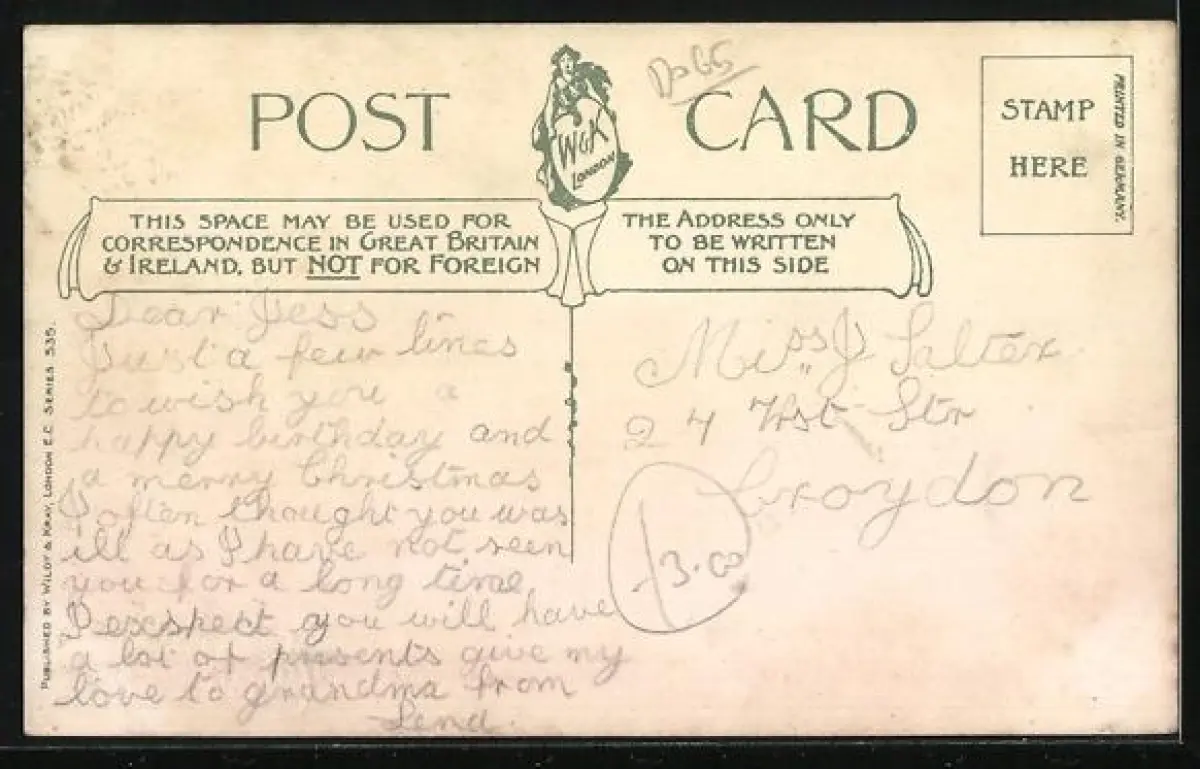 POST CARD
Dogs
W&K
LONDON
STAMP
HERE
PRINTED IN GERMANY.
THIS SPACE MAY BE USED FOR
CORRESPONDENCE IN GREAT BRITAIN
& IRELAND, BUT NOT FOR FOREIGN
THE ADDRESS ONLY
TO BE WRITTEN
ON THIS SIDE
PUBLISHED BY WILDT & KRAY, LONDON E.C. SERIES 535.
Dear Jess
Just a few lines
to wish you a
happy birthday and
a merry Christmas
I often thought you was
ill as I have not seen
you for a long time
I exspect you will have
a lot of presents give my
love to grandma from
Lena.
Miss J Salter
24 Str
Croydon
3.00